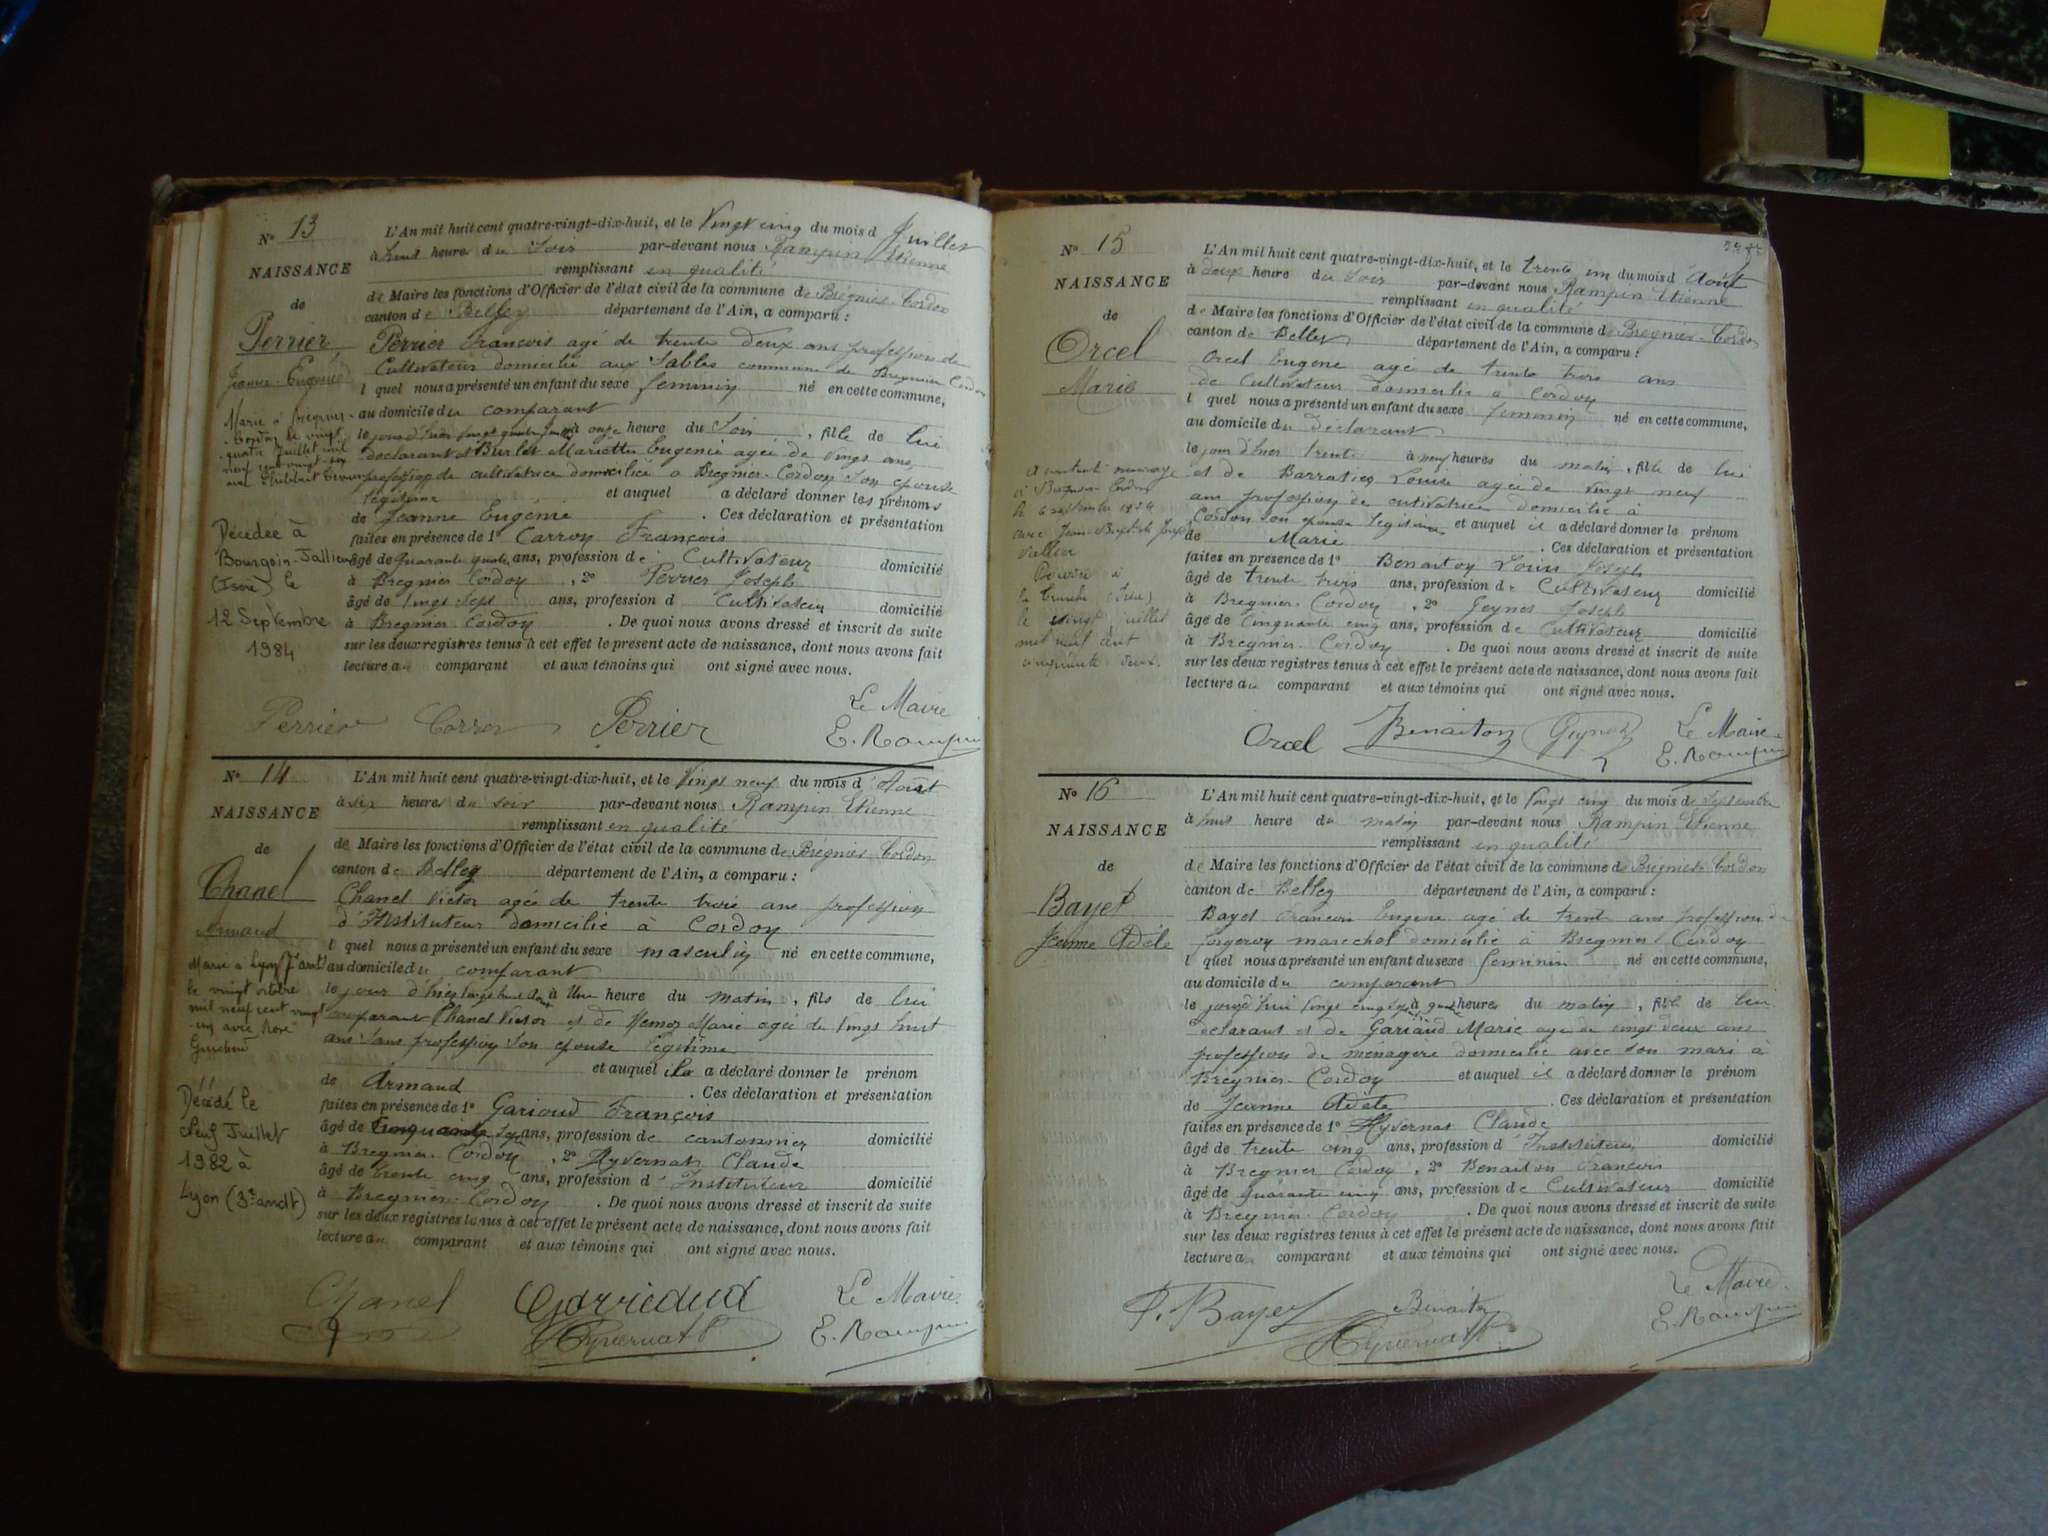 N° 13
NAISSANCE
de
Perrier
Jeanne Eugénie
Marie à Brégnier-
Cordon le vingt
quatre Juillet mil
neuf cent vingt
avec
Décédée à
Bourgoin-Jallieu
(Isère) le
12 Septembre
1984
L'An mil huit cent quatre-vingt-dix-huit, et le Vingt cinq du mois d Juillet
à huit heures du Soir par-devant nous Rampin Etienne
remplissant en qualité
de Maire les fonctions d'Officier de l'état civil de la commune de Brégnier-Cordon
canton de Belley département de l'Ain, a comparu :
Perrier François agé de trente deux ans profession de
Cultivateur domicilié aux Sables commune de Bregnier Cordon
l quel nous a présenté un enfant du sexe feminin né en cette commune,
au domicile du comparant
le jour d'hier vingt quatre à onze heure du Soir, fille de lui
declarant et Burlet Mariette Eugenie agée de vingt ans,
profession de cultivatrice domiciliée a Bregnier-Cordon Son epouse
légitime et auquel a déclaré donner les prénoms
de Jeanne Eugénie. Ces déclaration et présentation
faites en présence de 1° Carron François
âgé de Quarante quatre ans, profession de Cultivateur domicilié
à Bregnier Cordon, 2° Perrier Joseph
âgé de Vingt Sept ans, profession d Cultivateur domicilié
à Bregnier Cordon. De quoi nous avons dressé et inscrit de suite
sur les deux registres tenus à cet effet le présent acte de naissance, dont nous avons fait
lecture au comparant et aux témoins qui ont signé avec nous.
Le Maire
Perrier Carron Perrier E. Rampin
N° 14
NAISSANCE
de
Chanel
Armaud
Marie à Lyon
le vingt octobre
mil neuf cent vingt
un avec Rose
Décédé le
Neuf Juillet
1982 à
Lyon (3e arrdt)
L'An mil huit cent quatre-vingt-dix-huit, et le Vingt neuf du mois d'Août
à six heures du soir par-devant nous Rampin Etienne
remplissant en qualité
de Maire les fonctions d'Officier de l'état civil de la commune de Bregnier-Cordon
canton de Belley département de l'Ain, a comparu :
Chanel Victor agée de trente trois ans profession
d'Instituteur domicilié à Cordon
l quel nous a présenté un enfant du sexe masculin né en cette commune,
au domicile du comparant
le jour d'hier vingt huit Août à Une heure du matin, fils de lui
comparant Chanel Victor et de Marie agée de vingt huit
ans Sans profession Son epouse légitime
et auquel il a déclaré donner le prénom
de Armaud. Ces déclaration et présentation
faites en présence de 1° Garioud François
âgé de Cinquante Sept ans, profession de cantonnier domicilié
à Bregnier-Cordon, 2° Hyvernat Claude
âgé de trente cinq ans, profession d'Instituteur domicilié
à Bregnier-Cordon. De quoi nous avons dressé et inscrit de suite
sur les deux registres tenus à cet effet le présent acte de naissance, dont nous avons fait
lecture au comparant et aux témoins qui ont signé avec nous.
Chanel Garrieaud Le Maire
Hyvernat E. Rampin
N° 15
NAISSANCE
de
Orcel
Marie
a contracté mariage
à Bregnier Cordon
le 6 septembre 1924
avec Jean-Baptiste Joseph
le vingt juillet
mil neuf cent
cinquante deux.
L'An mil huit cent quatre-vingt-dix-huit, et le trente un du mois d Août
à deux heure du Soir par-devant nous Rampin Etienne
remplissant en qualité
de Maire les fonctions d'Officier de l'état civil de la commune de Bregnier-Cordon
canton de Belley département de l'Ain, a comparu :
Orcel Eugene agé de trente trois ans
de Cultivateur domicilié a Cordon
l quel nous a présenté un enfant du sexe feminin né en cette commune,
au domicile du declarant
le jour d'hier trente à neuf heures du matin, fille de lui
et de Louise agée de vingt neuf
ans profession de cultivatrice domicilié à
Cordon Son epouse legitime et auquel il a déclaré donner le prénom
de Marie. Ces déclaration et présentation
faites en présence de 1° Benaiton Louis Joseph
âgé de trente trois ans, profession de Cultivateur domicilié
à Bregnier-Cordon, 2° Joseph
âgé de Cinquante cinq ans, profession de Cultivateur domicilié
à Bregnier-Cordon. De quoi nous avons dressé et inscrit de suite
sur les deux registres tenus à cet effet le présent acte de naissance, dont nous avons fait
lecture au comparant et aux témoins qui ont signé avec nous.
Orcel Benaiton Le Maire
E. Rampin
N° 16
NAISSANCE
de
Bayet
Jeanne Adéle
L'An mil huit cent quatre-vingt-dix-huit, et le Vingt cinq du mois de Septembre
à huit heure du matin par-devant nous Rampin Etienne
remplissant en qualité
de Maire les fonctions d'Officier de l'état civil de la commune de Bregnier-Cordon
canton de Belley département de l'Ain, a comparu :
Bayet Francois Eugene agé de trente ans profession de
forgeron marechal domicilié à Bregnier Cordon
l quel nous a présenté un enfant du sexe feminin né en cette commune,
au domicile du comparant
le jourd'hui vingt cinq à heures du matin, fille de lui
declarant et de Gariaud Marie agée de vingt deux ans
profession de ménagère domicilié avec son mari à
Bregnier-Cordon et auquel il a déclaré donner le prénom
de Jeanne Adéle. Ces déclaration et présentation
faites en présence de 1° Hyvernat Claude
âgé de trente cinq ans, profession d'Instituteur domicilié
à Bregnier Cordon, 2° Benaiton Francois
âgé de quarante cinq ans, profession de Cultivateur domicilié
à Bregnier-Cordon. De quoi nous avons dressé et inscrit de suite
sur les deux registres tenus à cet effet le présent acte de naissance, dont nous avons fait
lecture au comparant et aux témoins qui ont signé avec nous.
Le Maire
Bayet Benaiton E. Rampin
Hyvernat